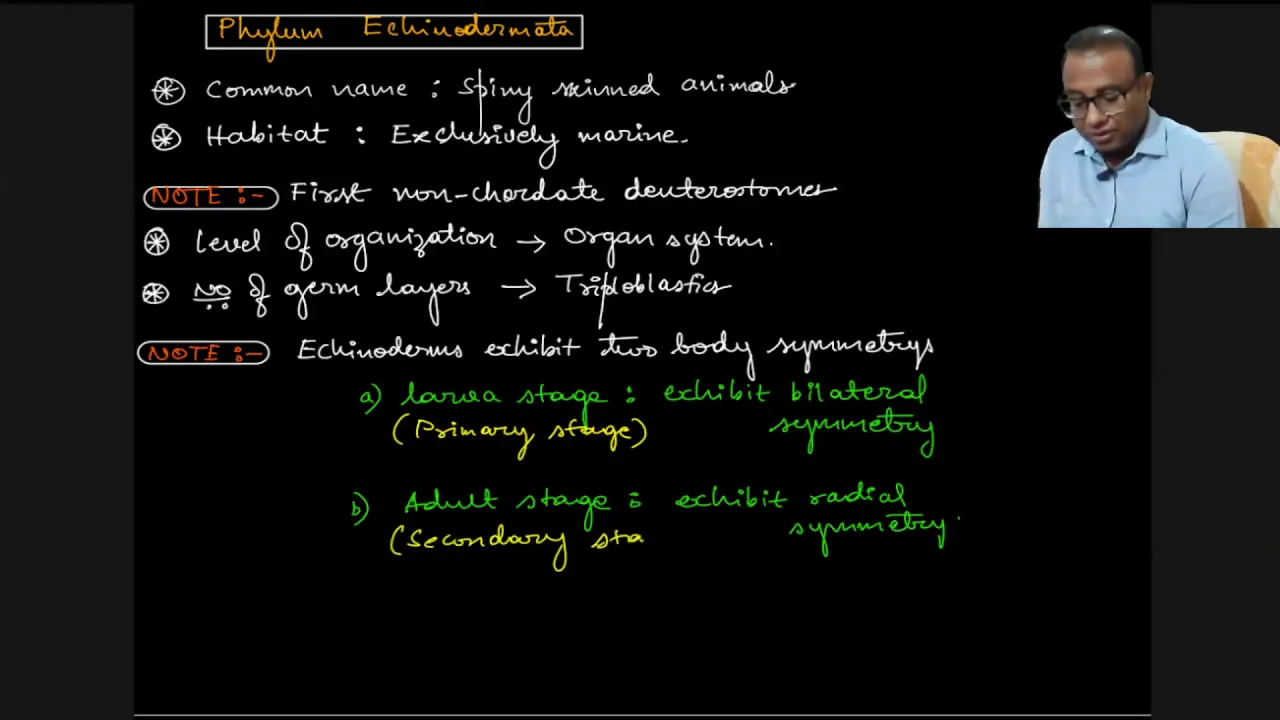 Phylum Echinodermata
Common name : Spiny skinned animals
Habitat : Exclusively marine.
NOTE :- First non-chordate deuterostomes
Level of organization → Organ system.
No of germ layers → Triploblastics
NOTE :- Echinoderms exhibit two body symmetrys
a) larvea stage : exhibit bilateral
(Primary stage) symmetry
b) Adult stage : exhibit radial
(Secondary sta symmetry.